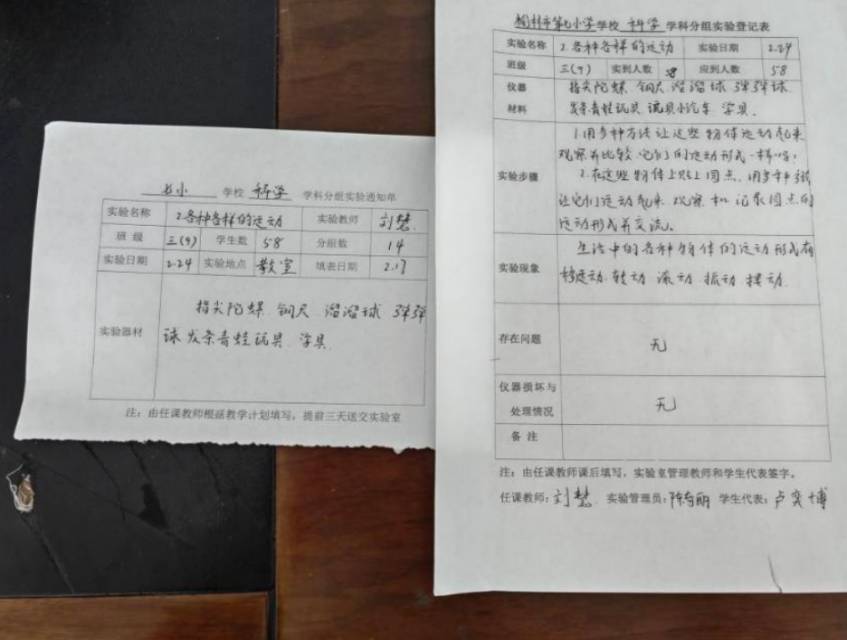 七小 学校 科学 学科分组实验通知单
实验名称 2.各种各样的运动 实验教师 刘慧
班 级 三(9) 学生数 58 分组数 14
实验日期 2.24 实验地点 教室 填表日期 2.17
实验器材
指尖陀螺 钢尺 溜溜球 弹弹
球 发条青蛙玩具 学具
注：由任课教师根据教学计划填写，提前三天送交实验室
榆林市第七小学学校 科学 学科分组实验登记表
实验名称 2.各种各样的运动 实验日期 2.24
班级 三(9) 实到人数 58 应到人数 58
仪器 指尖陀螺 钢尺 溜溜球 弹弹球
材料 发条青蛙玩具 玩具小汽车 学具。
实验步骤
1.用多种方法让这些物体运动起来
观察并比较它们的运动形式一样吗？
2.在这些物体上贴上圆点，用多种
让它们运动起来 观察和记录圆点的
运动形式并交流。
实验现象
生活中的各种物体的运动形式有
移动 转动 滚动 振动 摆动
存在问题 无
仪器损坏与
处理情况 无
备 注
注：由任课教师课后填写，实验室管理教师和学生代表签字。
任课教师：刘慧 实验管理员： 学生代表：卢奕博